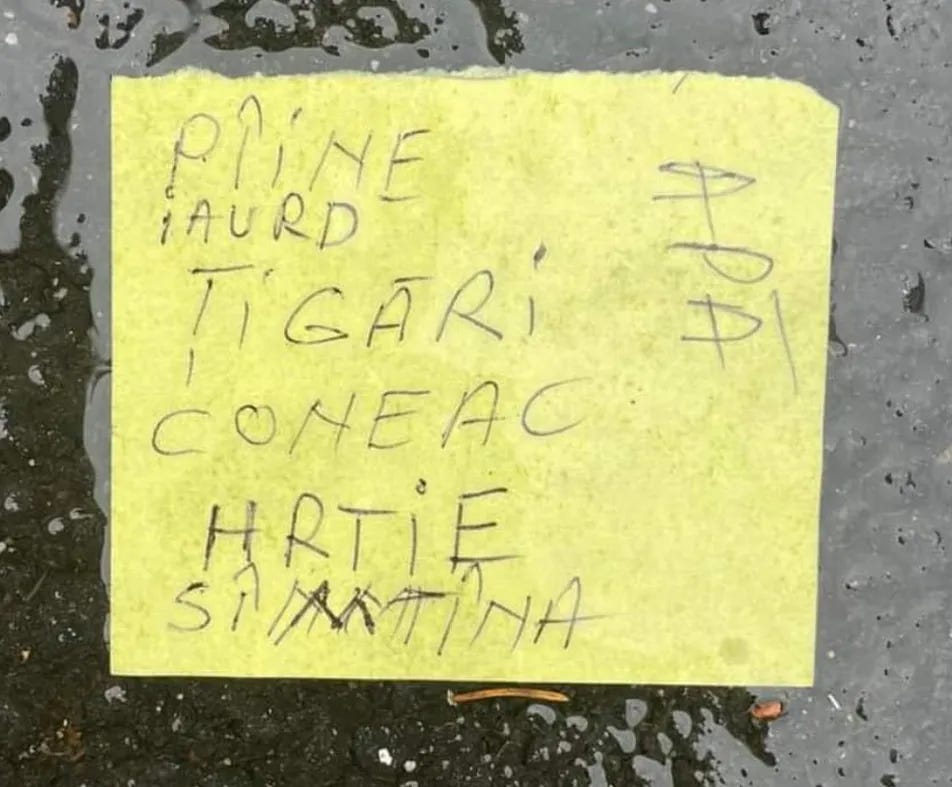 PÎINE
iAURD
ȚIGĀRi
CONEAC
HRTiE
SÎMTÎNA
ADDI